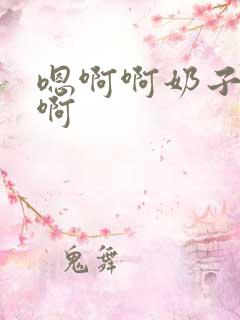 嗯啊啊奶子
啊
鬼舞